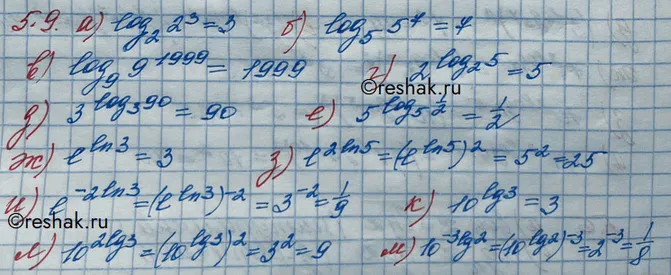 5.9. а) log₂ 2³ = 3 б) log₅ 5⁷ = 7
в) log₉ 9¹⁹⁹⁹ = 1999 г) 2^(log₂ 5) = 5
д) 3^(log₃ 90) = 90 е) 5^(log₅ 1/2) = 1/2
ж) e^(ln3) = 3 з) e^(2ln5) = (e^(ln5))² = 5² = 25
и) e^(-2ln3) = (e^(ln3))⁻² = 3⁻² = 1/9 к) 10^(lg3) = 3
л) 10^(2lg3) = (10^(lg3))² = 3² = 9 м) 10^(-3lg2) = (10^(lg2))⁻³ = 2⁻³ = 1/8
Reshak.ru